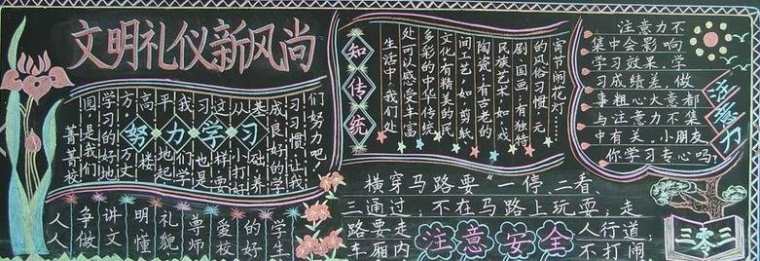 文明礼仪新风尚
努力学习
菁菁校
园，是我们
学习的好地
方。万丈
高楼
平地起，
我们学
习也是
这样，要
从打好
基础，养
成良好的学
习习惯，让我
们努力吧！
人人
争做
讲文
明懂
礼貌，
尊师
爱校
的好
学生
知传统
生活中，我们处
处可以感受丰富
多彩的中华传统
文化：有精美的民
间工艺，如，剪纸
陶瓷；有古老的
民族艺术，如，戏
剧、国画；有独特
的风俗习惯，元
宵节闹花灯……
注意力
注意力不
集中会影响
学习效果，学
习成绩差，做
事粗心大意都
与注意力不集
中有关，小朋友
你学习专心吗？
横穿马路要 一停、二看、
三通过，不在马路上玩耍，走
路要走 人行道，
车厢内 不打闹
注意安全
三零三